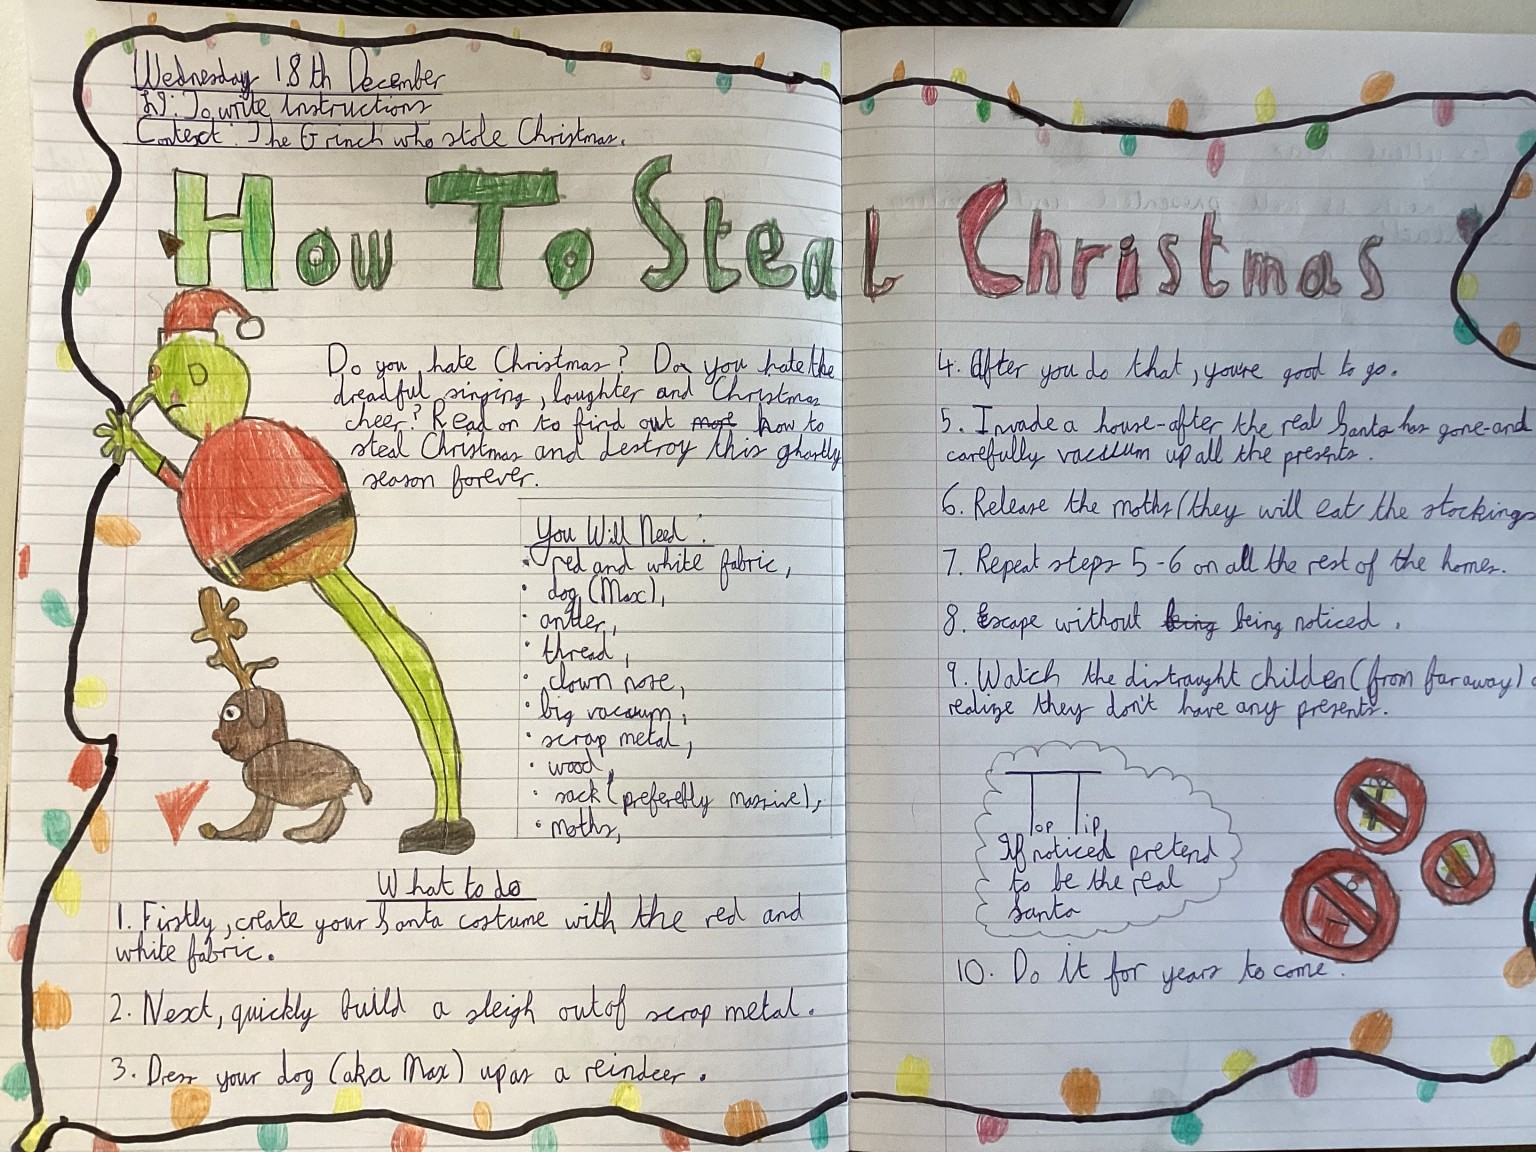 Wednesday 18th December
LI: To write Instructions
Context: The Grinch who stole Christmas.
How To Steal Christmas
Do you hate Christmas? Do you hate the
dreadful singing, laughter and Christmas
cheer? Read on to find out how to
steal Christmas and destroy this ghastly
season forever.
You Will Need:
• red and white fabric,
• dog (Max),
• antler,
• thread,
• clown nose,
• big vacuum,
• scrap metal,
• wood,
• sack (preferebly massive),
• moths,
What to do
1. Firstly, create your Santa costume with the red and
white fabric.
2. Next, quickly build a sleigh out of scrap metal.
3. Dress your dog (aka Max) up as a reindeer.
4. After you do that, you're good to go.
5. Invade a house-after the real Santa has gone-and
carefully vacuum up all the presents.
6. Release the moths (they will eat the stockings
7. Repeat steps 5-6 on all the rest of the homes.
8. Escape without being being noticed.
9. Watch the distraught children (from far away)
realize they don't have any presents.
Top Tip
If noticed pretend
to be the real
Santa
10. Do it for years to come.